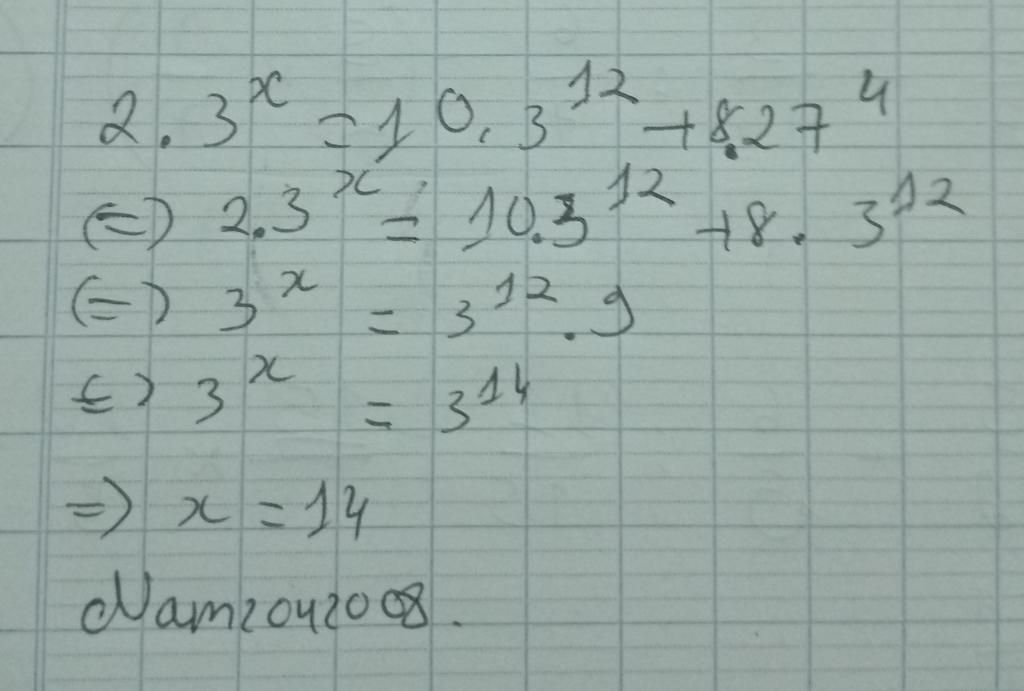 2. 3^x = 10. 3^12 + 8.27^4
(=) 2.3^x = 10.3^12 + 8. 3^12
(=) 3^x = 3^12 . 9
(=) 3^x = 3^14
=) x = 14
Nam2042008.